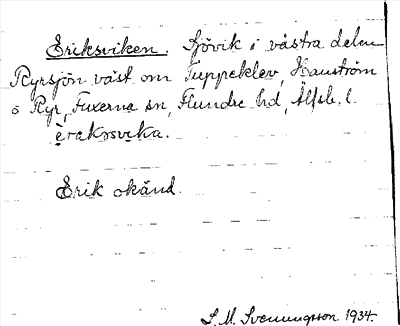 Eriksviken. Sjövik i västra delen
Ryrsjön väst om Tuppeklev, Hanström
o Ryr, Fuxerna sn, Flundre hd, Älfsb. l.
Erik okänd.
S. M. Svenungsson 1934.